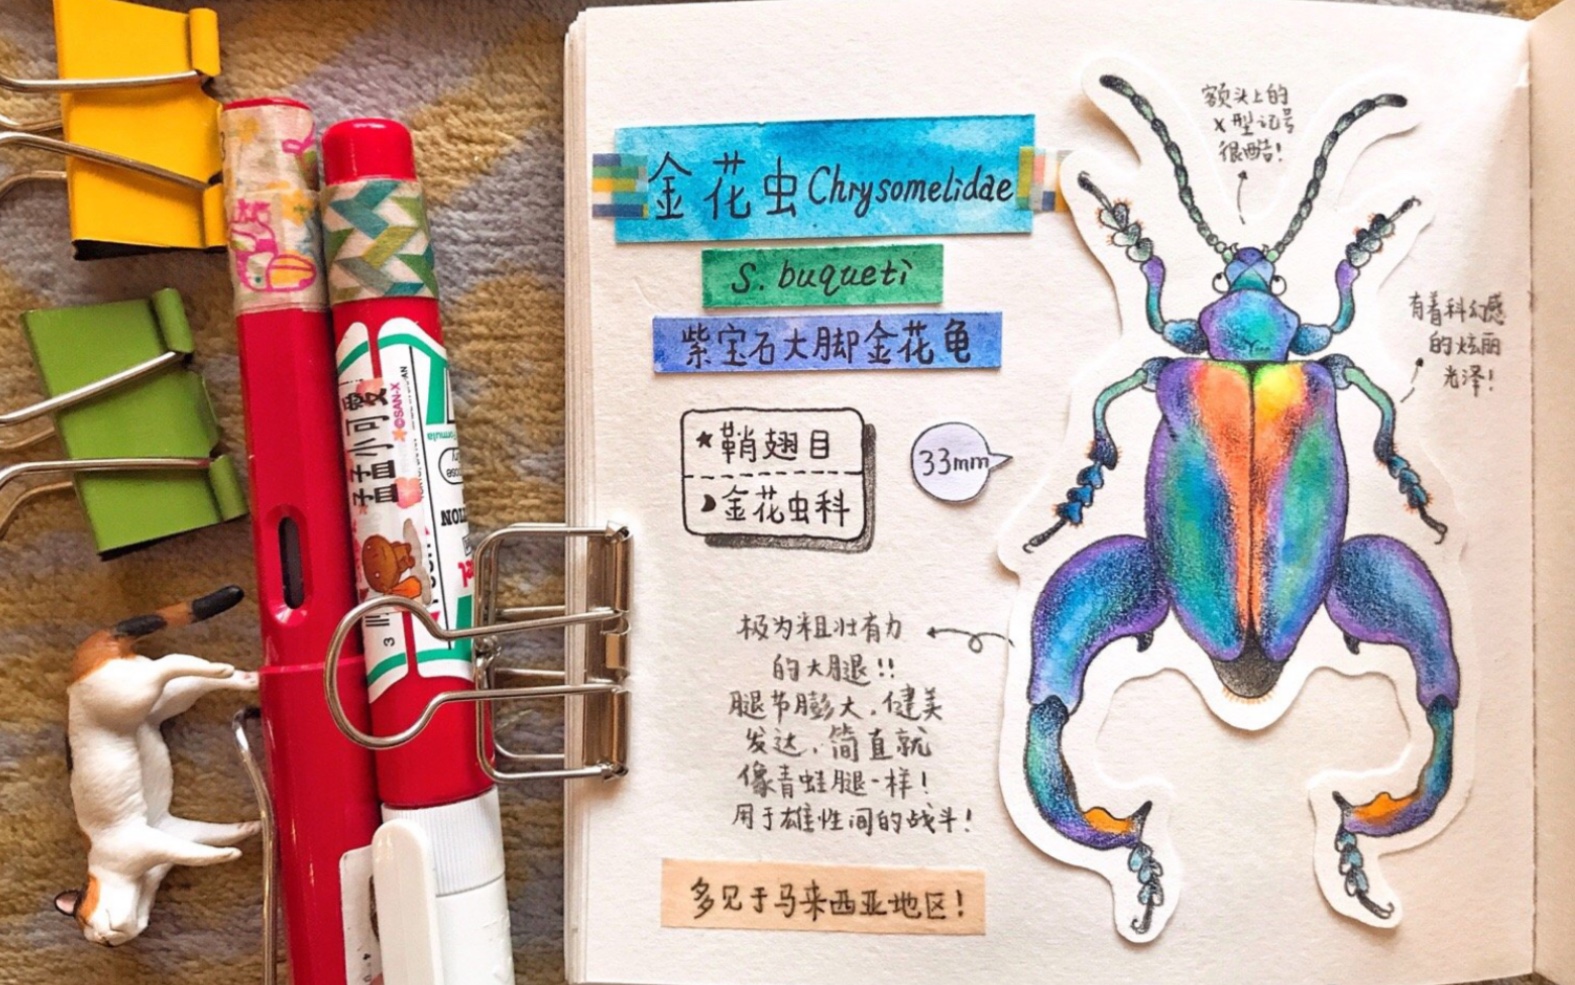 金花虫 Chrysomelidae
S. buqueti
紫宝石大脚金花龟
★鞘翅目
金花虫科
33mm
额头上的
X型记号
很酷!
有着科幻感
的炫丽
光泽!
极为粗壮有力
的大腿!!
腿节膨大,健美
发达,简直就
像青蛙腿一样!
用于雄性间的战斗!
多见于马来西亚地区!
©SAN-X